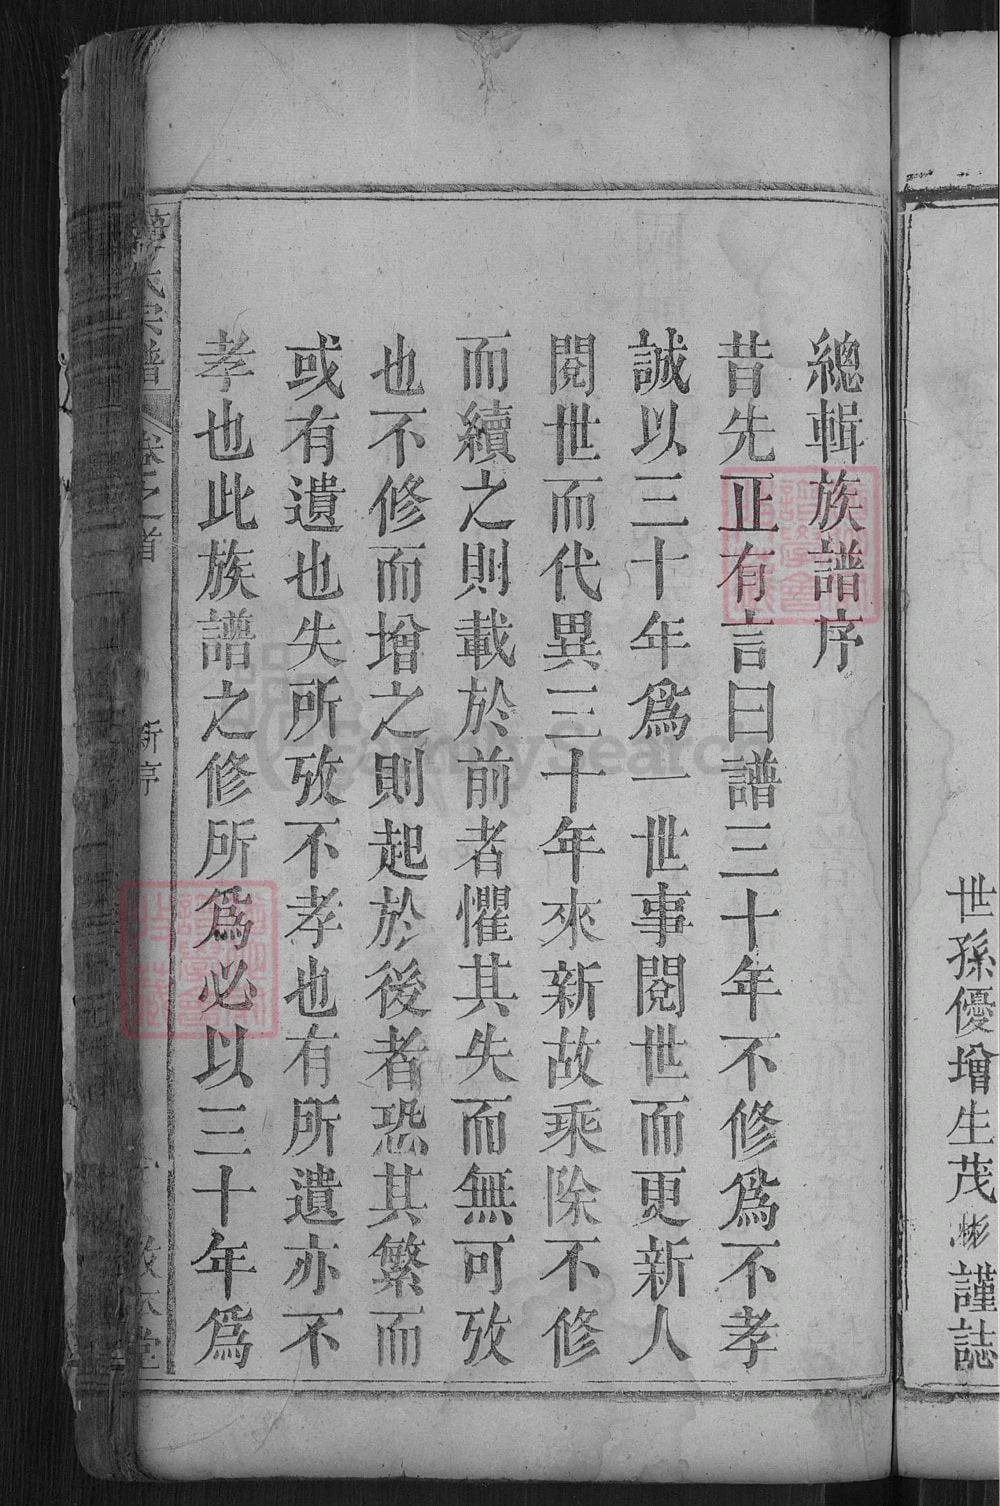 世孫優增生茂彬謹誌
總輯族譜序
昔先正有言曰譜三十年不修爲不孝
誠以三十年爲一世事閱世而更新人
閱世而代異三十年來新故乘除不修
而續之則載於前者懼其失而無可攷
也不修而增之則起於後者恐其繁而
或有遺也失所攷不孝也有所遺亦不
孝也此族譜之修所爲必以三十年爲
氏宗譜
卷之首
新序
堂
FamilySearch